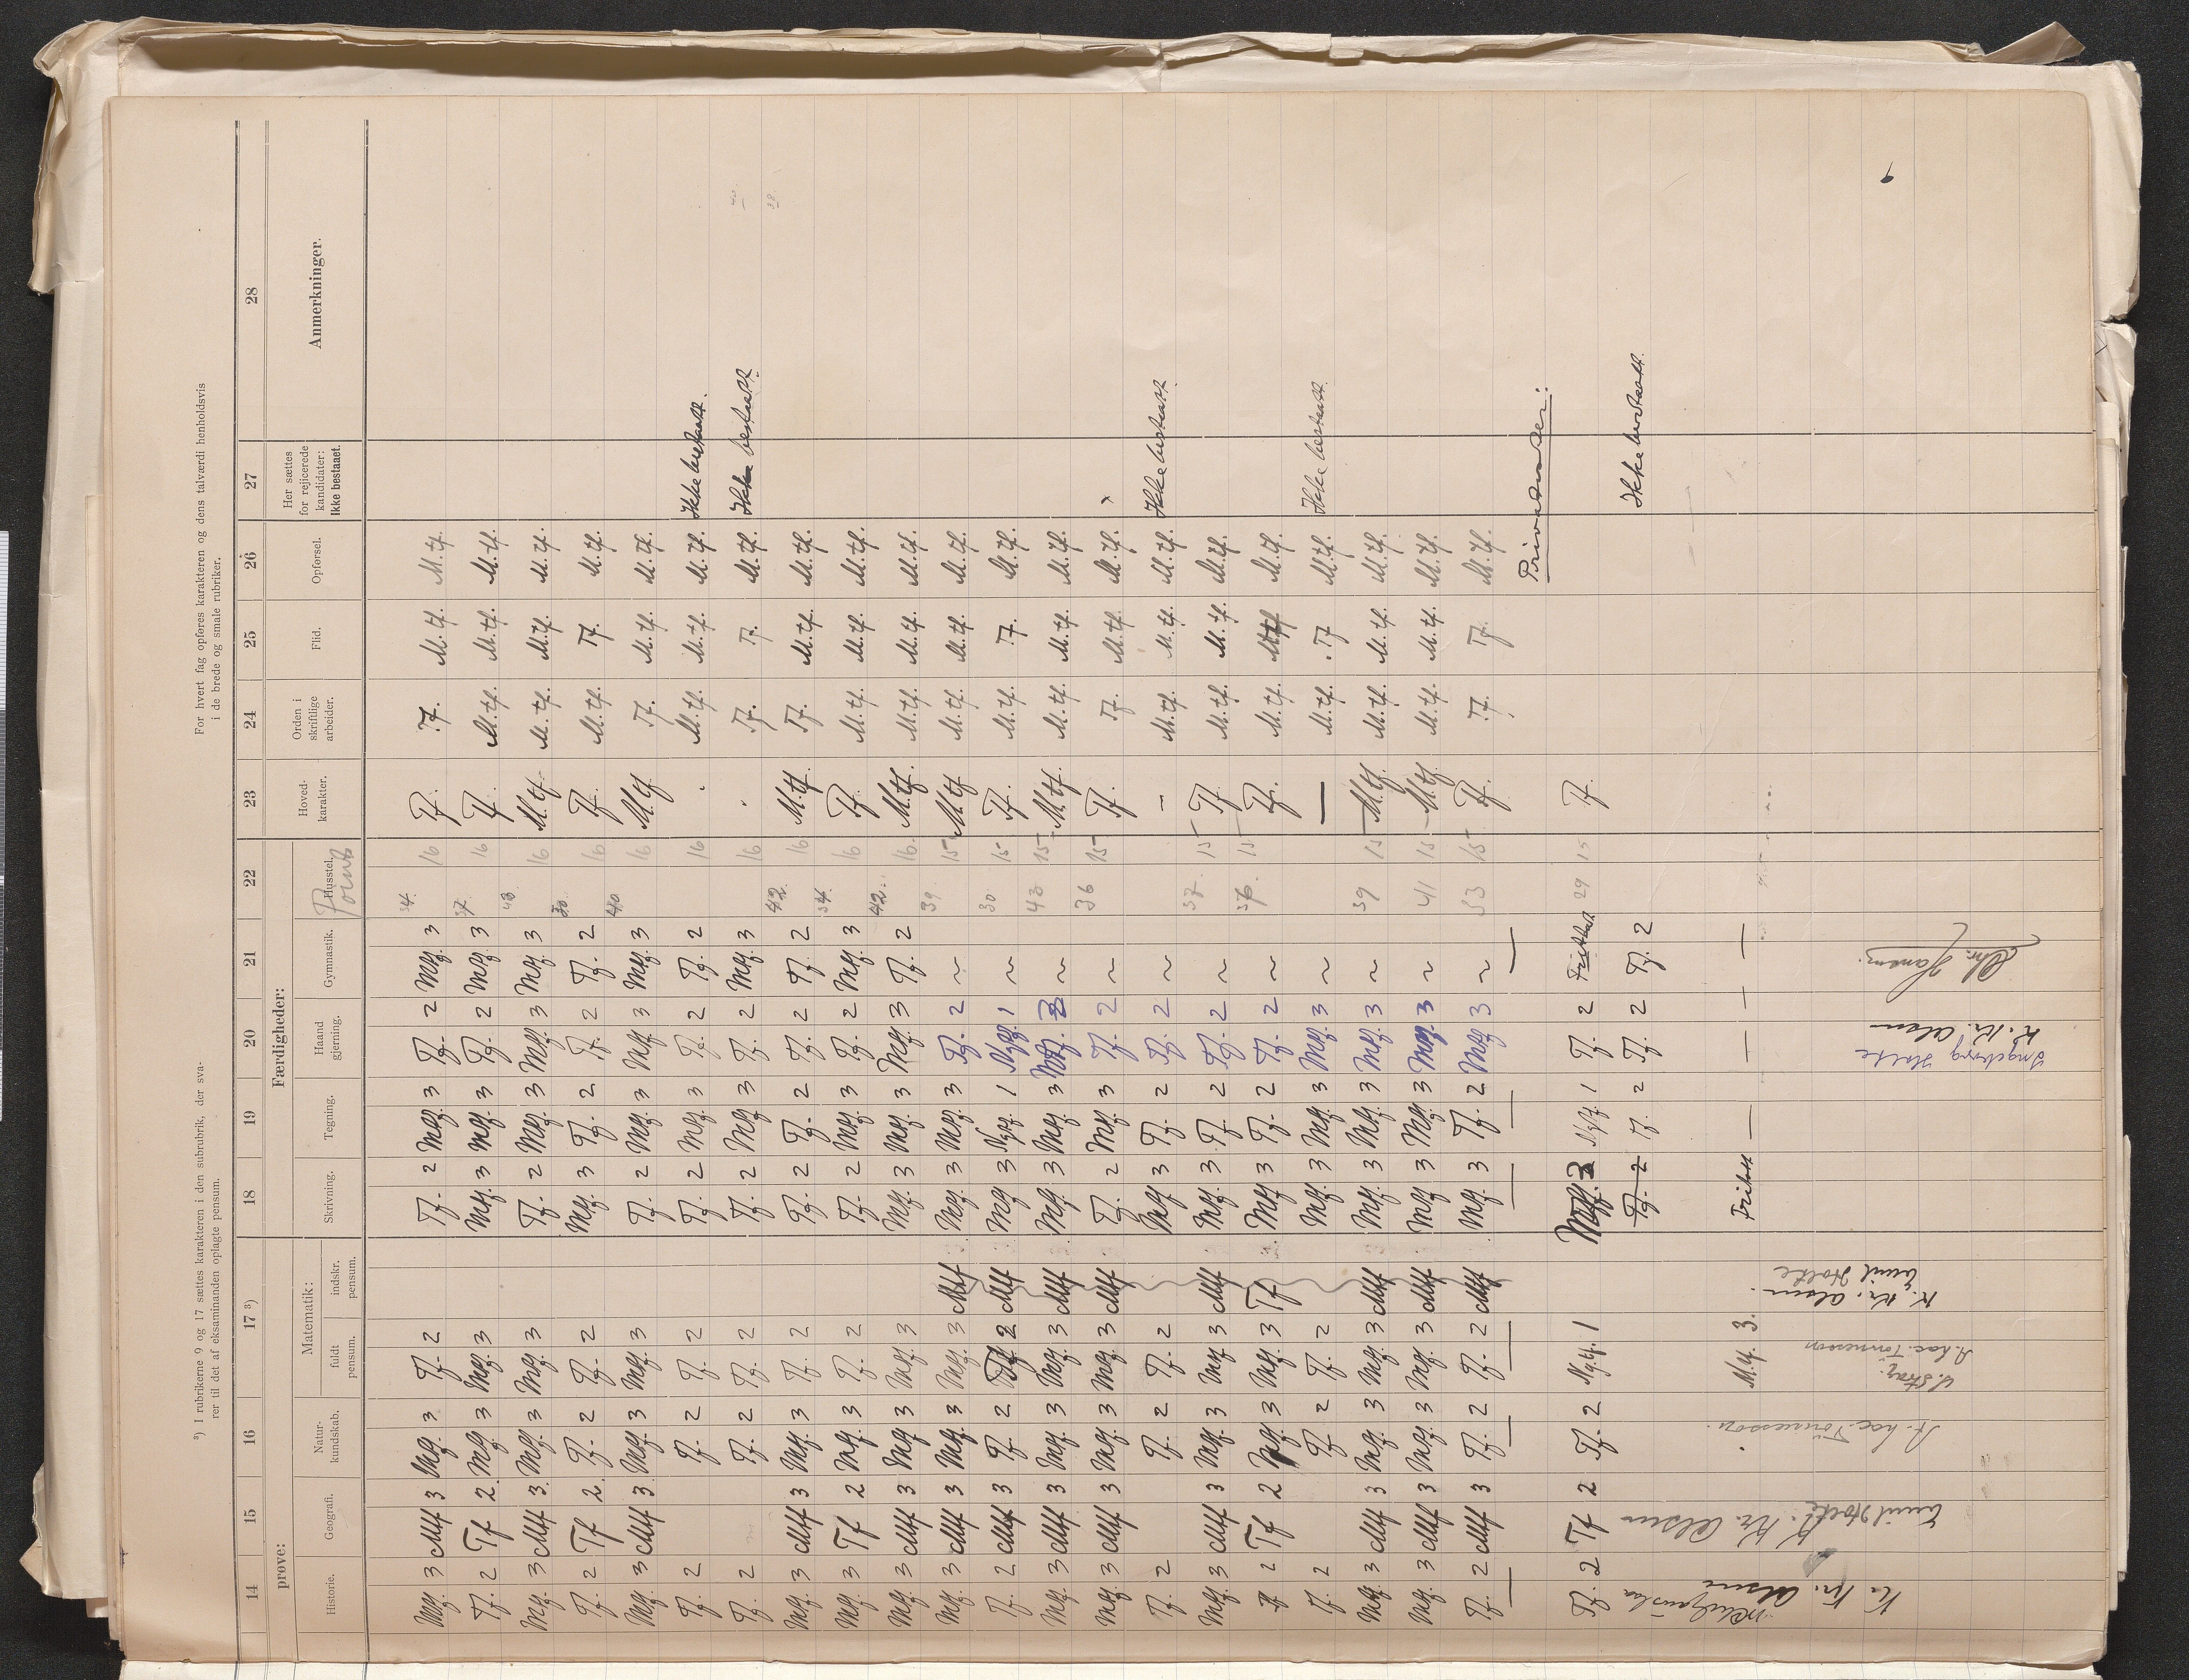 ³) I rubrikerne 9 og 17 sættes karakteren i den subrubrik, der sva-
rer til det af eksaminanden oplagte pensum.
For hvert fag opføres karakteren og dens talværdi henholdsvis
i de brede og smale rubriker.
14 15 16 17 ³) 18 19 20 21 22 23 24 25 26 27 28
prøve: Færdigheder:
Historie. Geografi. Natur-kundskab. Matematik: fuldt pensum. indskr. pensum. Skrivning. Tegning. Haand gjerning. Gymnastik. Husstel. Points Hoved-karakter. Orden i skriftlige arbeider. Flid. Opførsel. Her sættes for rejicerede kandidater: Ikke bestaaet. Anmerkninger.
Meg. 3 Mtf 3 Meg. 3 Tf. 2 Tf. 2 Meg. 3 Tf. 2 Meg. 3 34. 16 Tf. Tf. M.tf. M.tf.
Tf. 2 Tf 2. Meg. 3 Meg. 3 Meg. 3 Meg. 3 Tf. 2 Meg. 3 37. 16 Tf. M.tf. M.tf. M.tf.
Meg. 3 Mtf 3. Meg. 3 Meg. 3 Tf. 2 Meg. 3 Meg. 3 Meg. 3 43 16 M.tf. M.tf. M.tf. M.tf.
Tf. 2 Tf 2. Tf. 2 Tf. 2 Meg. 3 Tf. 2 Tf. 2 Tf. 2 30. 16 Tf. M.tf. Tf. M.tf.
Meg. 3 Mtf 3. Meg. 3 Meg. 3 Tf. 2 Meg. 3 Meg. 3 Meg. 3 40 16 M.tf. Tf. M.tf. M.tf.
Tf. 2 Tf. 2 Tf. 2 Tf. 2 Meg. 3 Tf. 2 Tf. 2 16 M.tf. M.tf. M.tf. Ikke bestaatt.
Tf. 2 Tf. 2 Tf. 2 Tf. 2 Meg. 3 Tf. 2 Meg. 3 16 Tf. Tf. M.tf. Ikke bestaatt.
Meg. 3 Mtf 3 Meg. 3 Tf. 2 Tf. 2 Tf. 2 Tf. 2 Tf. 2 42. 16 M.tf. Tf. M.tf. M.tf.
Meg. 3 Tf 2 Meg. 3 Tf. 2 Tf. 2 Meg. 3 Tf. 2 Meg. 3 34. 16 Tf. M.tf. M.tf. M.tf.
Meg. 3 Mtf 3 Meg. 3 Meg. 3 Meg. 3 Meg. 3 Meg. 3 Tf. 2 42. 16. M.tf. M.tf. M.tf. M.tf.
Meg. 3 Mtf 3 Meg. 3 Meg. 3 Mtf Meg. 3 Meg. 3 Tf. 2 ~ 39. 15 M.tf M.tf. M.tf. M.tf.
Tf. 2 Mtf 3 Tf. 2 Tf. 2 Mtf Meg 3 Ngtf. 1 Ngtf. 1 ~ 30 15 Tf. M.tf. Tf. M.tf.
Meg. 3 Mtf 3 Meg. 3 Meg. 3 Mtf Meg. 3 Meg. 3 ~ 43 15 M.tf. M.tf. M.tf. M.tf.
Meg. 3 Mtf 3 Meg. 3 Meg. 3 Mtf Tf. 2 Meg. 3 Tf. 2 ~ 36 15 Tf. Tf. M.tf. M.tf.
Tf. 2 Tf. 2 Tf. 2 Meg 3 Tf. 2 Tf. 2 ~ — M.tf. M.tf. M.tf. Ikke bestaatt.
Meg. 3 Mtf 3 Meg. 3 Meg 3 Mtf Meg. 3 Tf. 2 Tf. 2 ~ 37. 15 Tf. M.tf. M.tf. M.tf.
Tf 2 Tf 2 Meg 3 Meg. 3 Tf Meg 3 Tf. 2 Tf. 2 ~ 15 Tf. M.tf. M.tf. M.tf.
Tf. 2 Tf. 2 Tf. 2 Meg. 3 Meg. 3 Meg. 3 ~ — M.tf. Tf M.tf. Ikke bestaatt.
Meg. 3 Mtf 3 Meg. 3 Meg. 3 Mtf Meg. 3 Meg. 3 Meg. 3 ~ 39 15 M.tf. M.tf. M.tf. M.tf.
Meg. 3 Mtf 3 Meg. 3 Meg. 3 Mtf Meg 3 Meg. 3 Meg. 3 ~ 41 15 M.tf. M.tf. M.tf. M.tf.
Tf. 2 Mtf 3 Tf. 2 Tf. 2 Mtf Meg. 3 Tf. 2 Meg 3 ~ 33 15 Tf. Tf. Tf. M.tf.
Privatister:
Tf. 2 Tf 2 Tf. 2 Ng.tf. 1 Meg. 3 Ngtf. 1 Tf. 2 Fritatt 29 15 Tf.
Tf. 2 Tf. 2 Tf. 2 Tf. 2 Ikke bestaatt.
M.tf. 3. Fritatt — — — —
K. Kr. Olsen
Emil Holte. K. Kr. Olsen
A. Isac. Tönnesson.
S. Stray.
A. Isac. Tönnesson
K. Kr. Olsen.
Emil Holte
Ingeborg Holte
K. Kr. Olsen
Chr. Hansen.
9